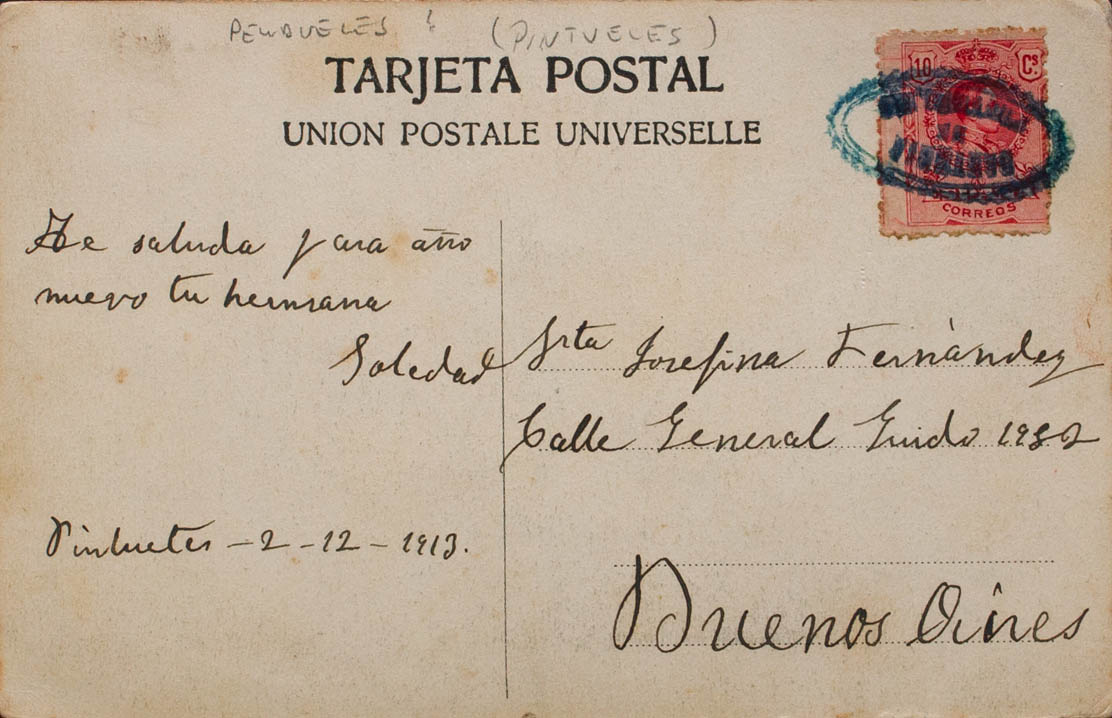 PEÑAVELES ? (PINTUELES)
TARJETA POSTAL
UNION POSTALE UNIVERSELLE
10 Cs
CORREOS
Te saluda para año
nuevo tu hermana
Soledad
Srta Josefina Fernández
Calle General Guido 1982
Buenos Aires
2-12-1913.